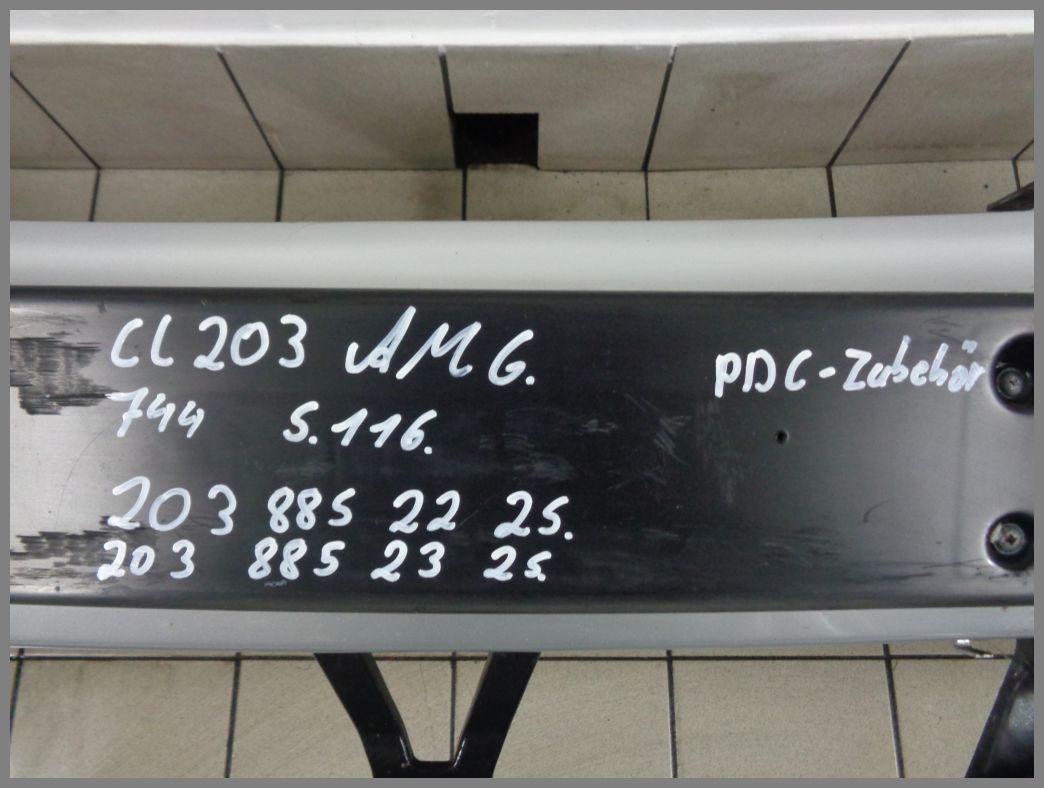 CL203 AMG.
PDC-Zubehör
744 S.116.
203 885 22 25.
203 885 23 25.